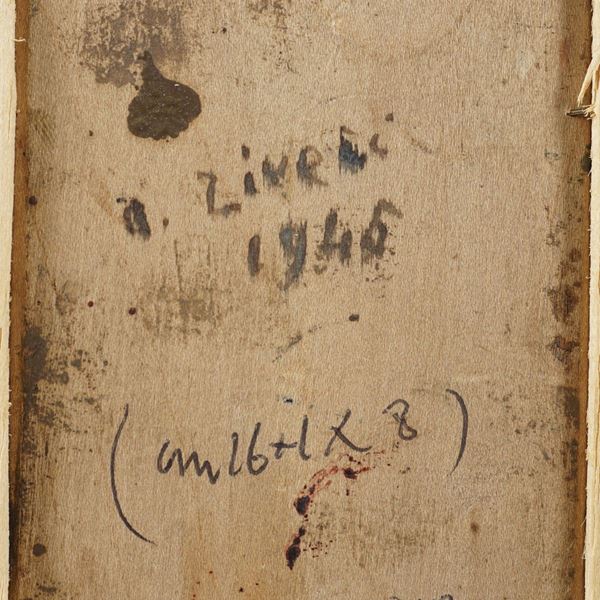 a. Ziveri
1945
(cm 16+1 X 8)